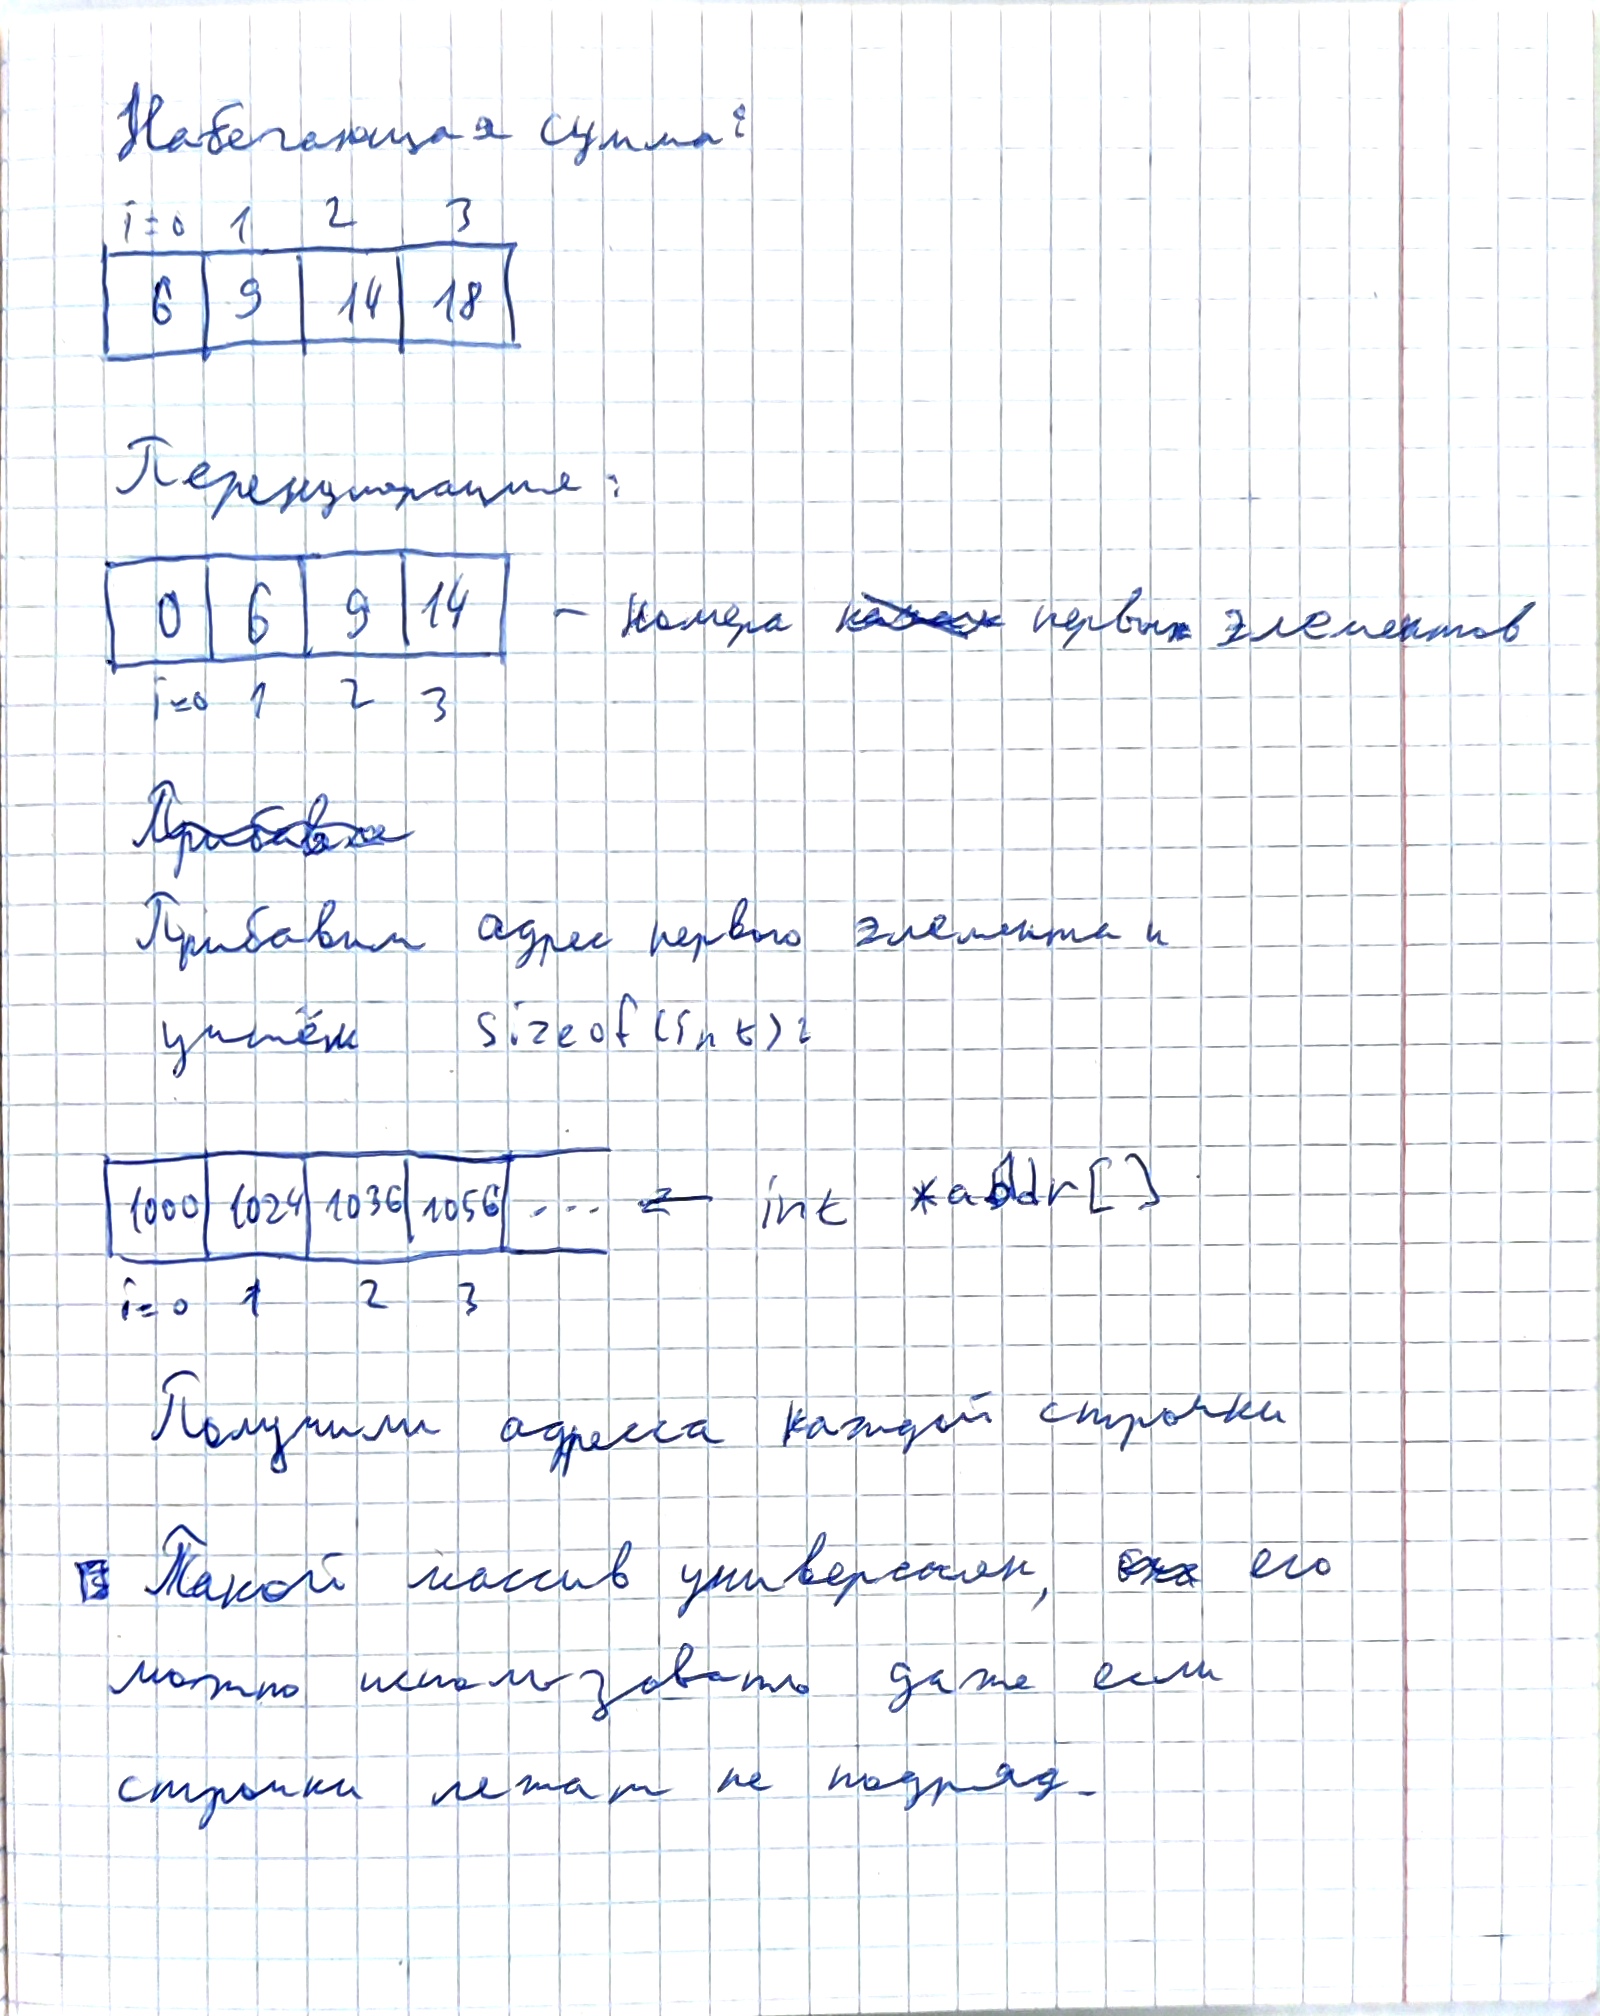 Набегающая сумма:
i=0 1 2 3
6 9 14 18
Перенумерация:
0 6 9 14 - номера первых элементов
i=0 1 2 3
Прибавим
Прибавим адрес первого элемента и
учтём sizeof(int):
1000 1024 1036 1056 ... int *addr[]
i=0 1 2 3
Получили адресса каждой строчки
Такой массив универсален, его
можно использовать даже если
строчки лежат не подряд.